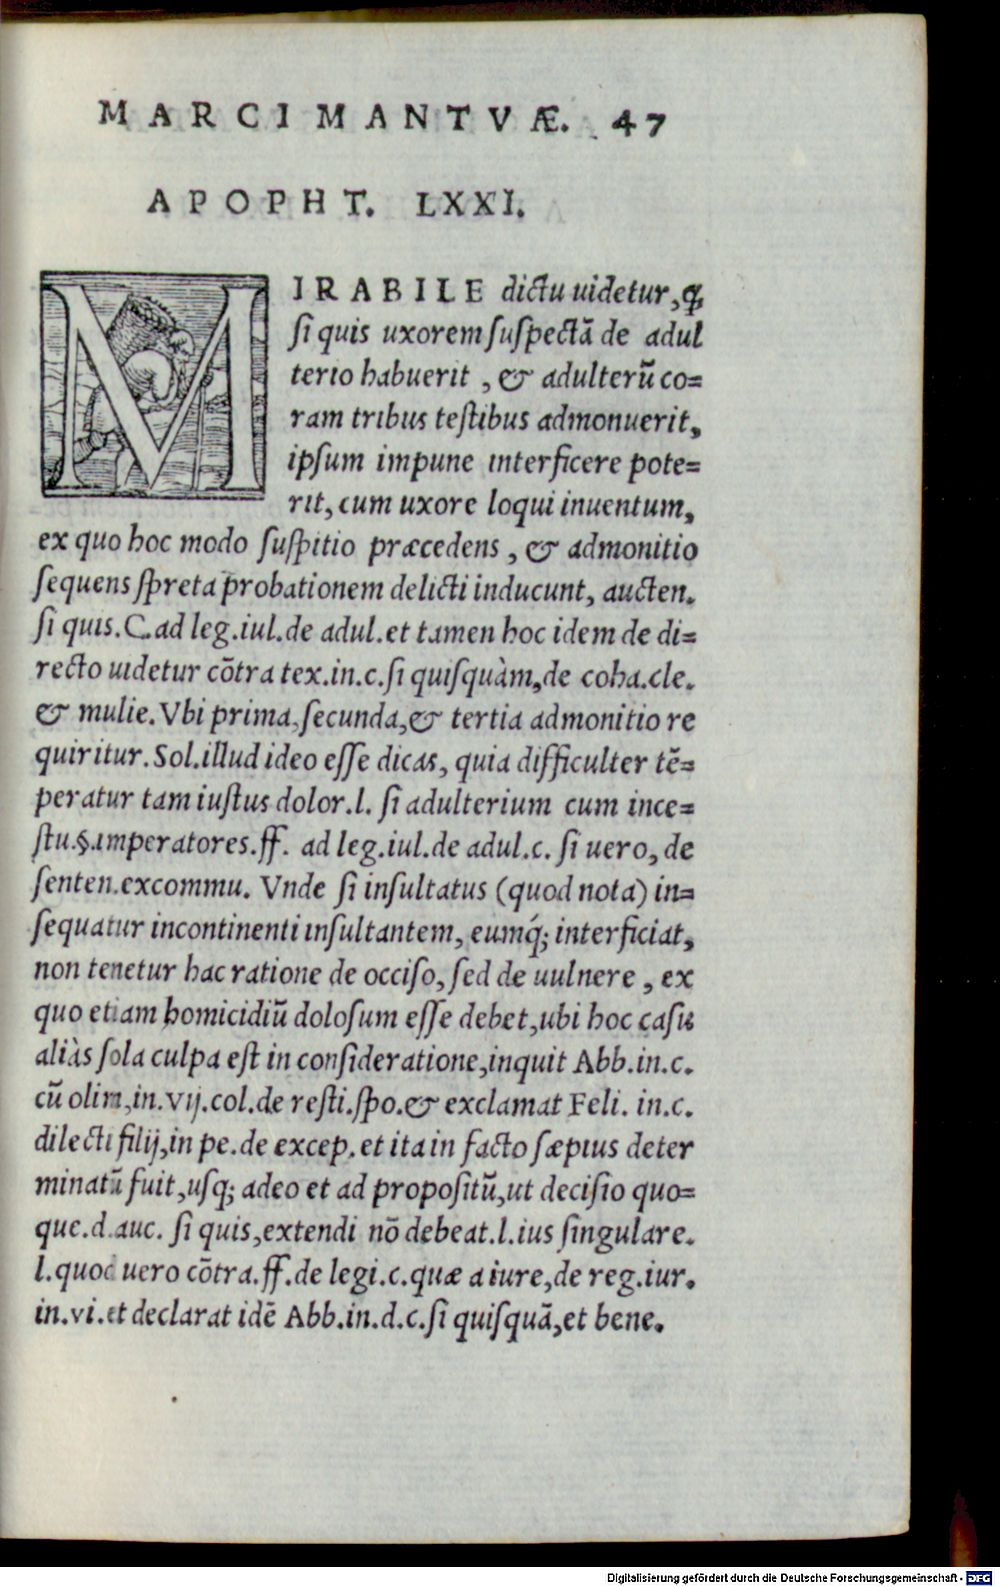 MARCI MANTVÆ. 47
APOPHT. LXXI.
MIRABILE dictu uidetur, ꝙ
ſi quis uxorem ſuſpectã de adul
terio habuerit , & adulterũ co=
ram tribus teſtibus admonuerit,
ipſum impune interficere pote=
rit, cum uxore loqui inuentum,
ex quo hoc modo ſuſpitio præcedens , & admonitio
ſequens ſpreta probationem delicti inducunt, aucten.
ſi quis.C.ad leg.iul.de adul.et tamen hoc idem de di=
recto uidetur cõtra tex.in.c.ſi quiſquàm,de coha.cle.
& mulie.Vbi prima,ſecunda,& tertia admonitio re
quiritur.Sol.illud ideo eſſe dicas, quia difficulter tẽ=
peratur tam iuſtus dolor.l. ſi adulterium cum ince=
ſtu.§.imperatores.ff. ad leg.iul.de adul.c. ſi uero, de
ſenten.excommu. Vnde ſi inſultatus (quod nota) in=
ſequatur incontinenti inſultantem, eumq́; interficiat,
non tenetur hac ratione de occiſo, ſed de uulnere , ex
quo etiam homicidiũ doloſum eſſe debet,ubi hoc caſu
aliàs ſola culpa eſt in conſideratione,inquit Abb.in.c.
cũ olim,in.vij.col.de reſti.ſpo.& exclamat Feli. in.c.
dilecti filij,in pe.de excep.et ita in facto ſæpius deter
minatũ fuit,uſq; adeo et ad propoſitũ,ut deciſio quo=
que.d.auc. ſi quis,extendi nõ debeat.l.ius ſingulare.
l.quod uero cõtra.ff.de legi.c.quæ a iure,de reg.iur.
in.vi.et declarat idẽ Abb.in.d.c.ſi quiſquã,et bene.
Digitalisierung gefördert durch die Deutsche Forschungsgemeinschaft - DFG